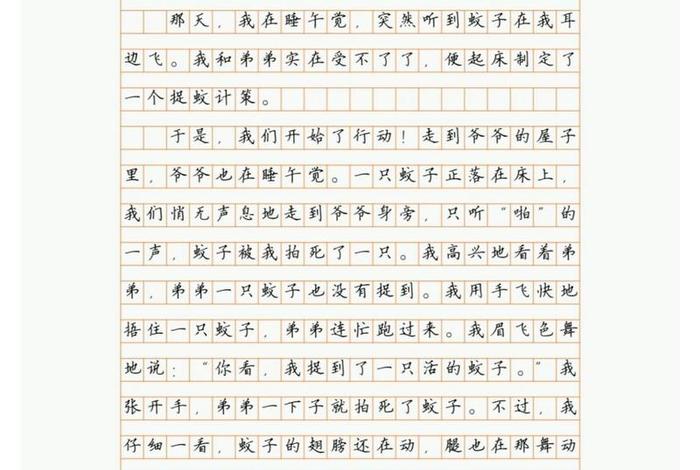 那天，我在睡午觉，突然听到蚊子在我耳
边飞。我和弟弟实在受不了了，便起床制定了
一个捉蚊计策。
于是，我们开始了行动！走到爷爷的屋子
里，爷爷也在睡午觉。一只蚊子正落在床上，
我们悄无声息地走到爷爷身旁，只听“啪”的
一声，蚊子被我拍死了一只。我高兴地看着弟
弟，弟弟一只蚊子也没有捉到。我用手飞快地
捂住一只蚊子，弟弟连忙跑过来。我眉飞色舞
地说：“你看，我捉到了一只活的蚊子。”我
张开手，弟弟一下子就拍死了蚊子。不过，我
仔细一看，蚊子的翅膀还在动，腿也在那舞动